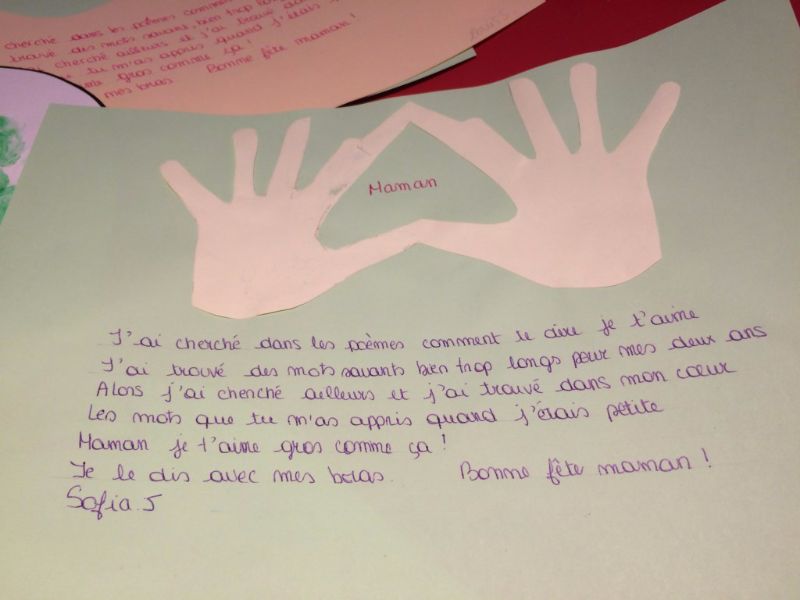 cherché dans les poèmes comment
trouvé des mots savant, bien trop
cherché ailleurs et j'ai trouvé
tu m'as appris quand j'étais
gros comme ça !
mes bras Bonne fête maman !
Maman
J'ai cherché dans les poèmes comment te dire je t'aime
J'ai trouvé des mots savants bien trop longs pour mes deux ans
Alors j'ai cherché ailleurs et j'ai trouvé dans mon coeur
Les mots que tu m'as appris quand j'étais petite
Maman je t'aime gros comme ça !
Je le dis avec mes bras. Bonne fête maman !
Sofia.J